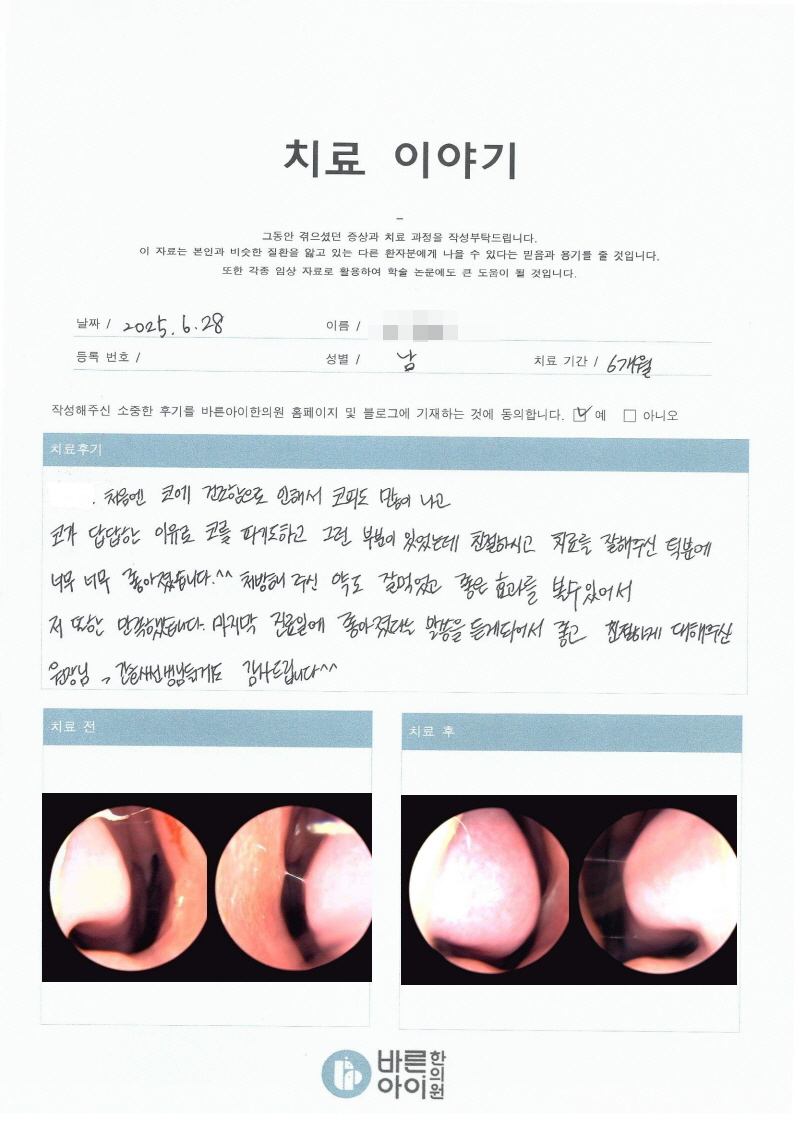 치료 이야기
그동안 겪으셨던 증상과 치료 과정을 작성부탁드립니다.
이 자료는 본인과 비슷한 질환을 앓고 있는 다른 환자분에게 나을 수 있다는 믿음과 용기를 줄 것입니다.
또한 각종 임상 자료로 활용하여 학술 논문에도 큰 도움이 될 것입니다.
날짜 / 2025. 6. 28 이름 /
등록 번호 / 성별 / 남 치료 기간 / 6개월
작성해주신 소중한 후기를 바른아이한의원 홈페이지 및 블로그에 기재하는 것에 동의합니다. ☑ 예 ☐ 아니오
치료후기
. 처음엔 코에 건조함으로 인해서 코피도 많이 나고
코가 답답한 이유로 코를 파기도하고 그런 부분이 있었는데 친절하시고 치료를 잘해주신 덕분에
너무 너무 좋아졌습니다.^^ 처방해 주신 약도 잘먹었고 좋은 효과를 볼수 있어서
저 또한 만족했습니다. 마지막 진료일에 좋아졌다는 말씀을 듣게되어서 좋고 친절하게 대해주신
원장님, 간호사선생님들께도 감사드립니다^^
치료 전
치료 후
바른아이한의원